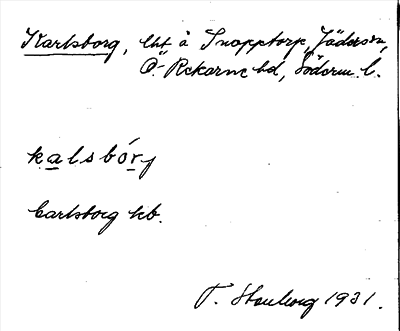 Karlsborg, lht å Snopptorp, Jäders sn,
Ö. Rekarne hd, Söderm. l.
kalsbórj
Carlsborg kb.
T. Stenborg 1931.